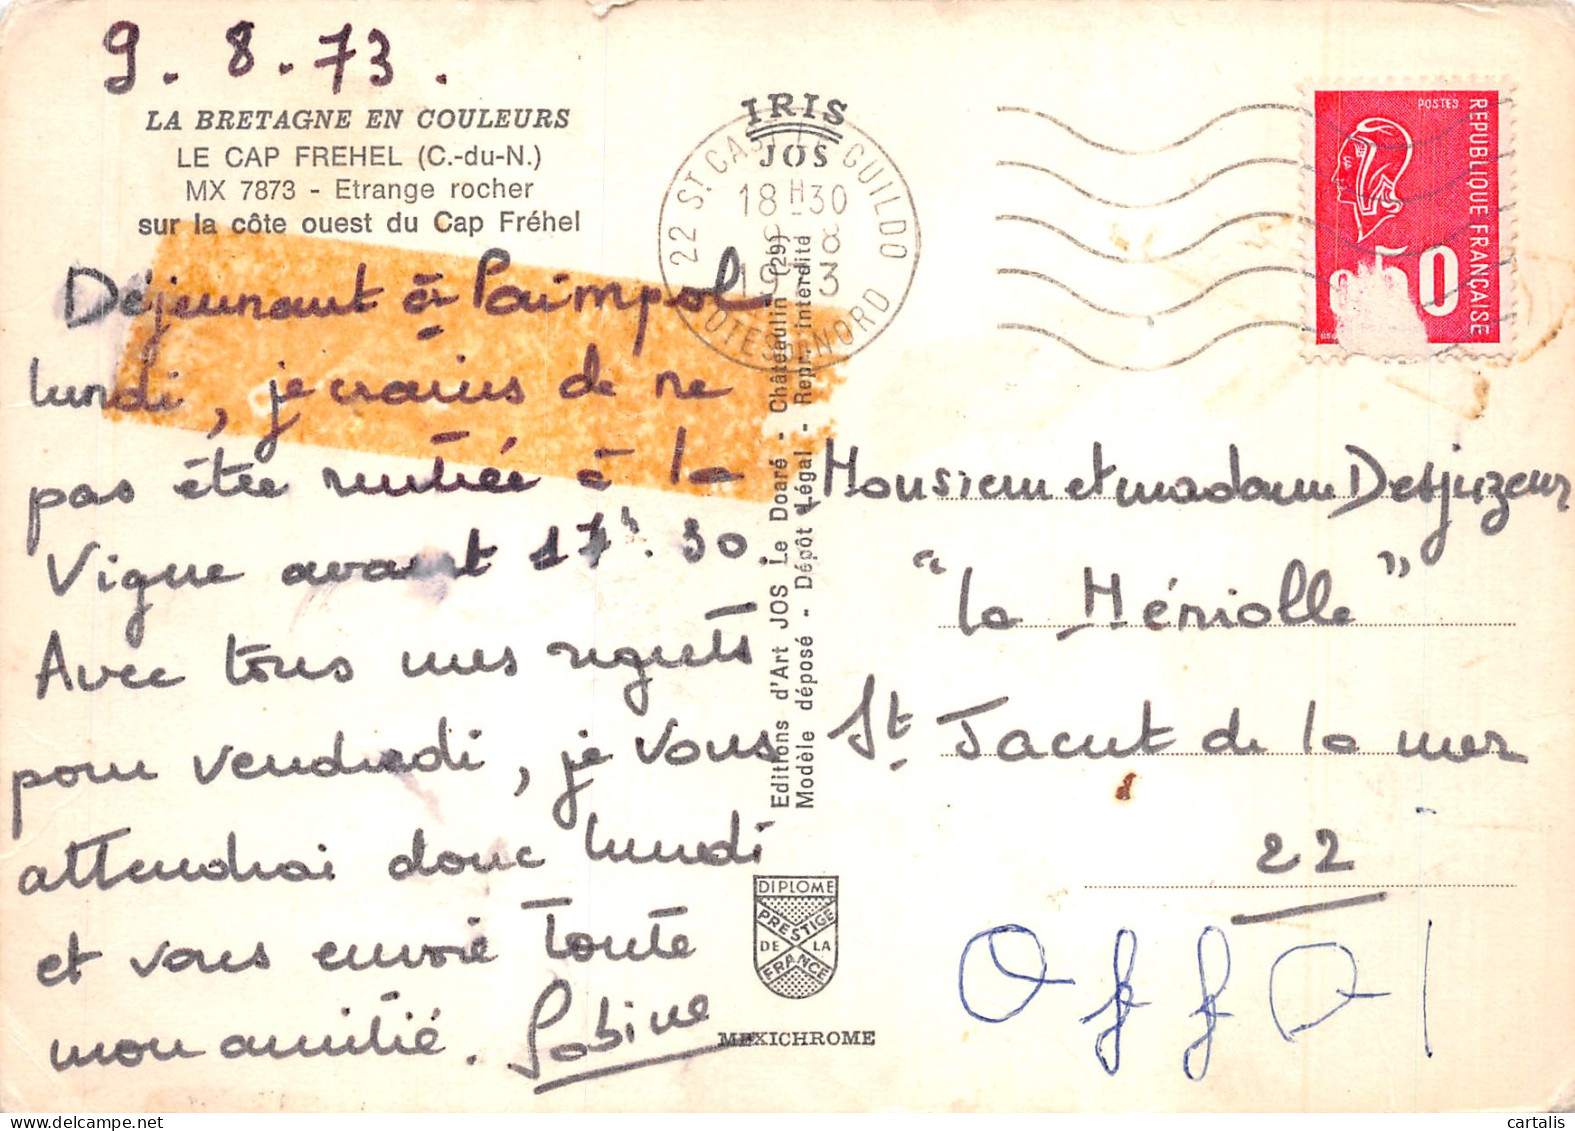 9.8.73.
LA BRETAGNE EN COULEURS
LE CAP FREHEL (C.-du-N.)
MX 7873 - Etrange rocher
sur la côte ouest du Cap Fréhel
Déjeunant à Paimpol
lundi, je crains de ne
pas être rentrée à la
Vigne avant 17h.30.
Avec tous mes regrets
pour vendredi, je vous
attendrai donc lundi
et vous envoie toute
mon amitié. Sabine
IRIS
JOS
22 ST CAST LE GUILDO
18H30
8
19 3
COTES DU NORD
Editions d'Art JOS Le Doaré - Châteaulin (29)
Modèle déposé - Dépôt Légal - Repr. interdite
DIPLOME
PRESTIGE
DE LA
FRANCE
MEXICHROME
POSTES
REPUBLIQUE FRANÇAISE
0.50
Monsieur et madame Desjuzeur
"la Mériolle"
St. Jacut de la mer
22